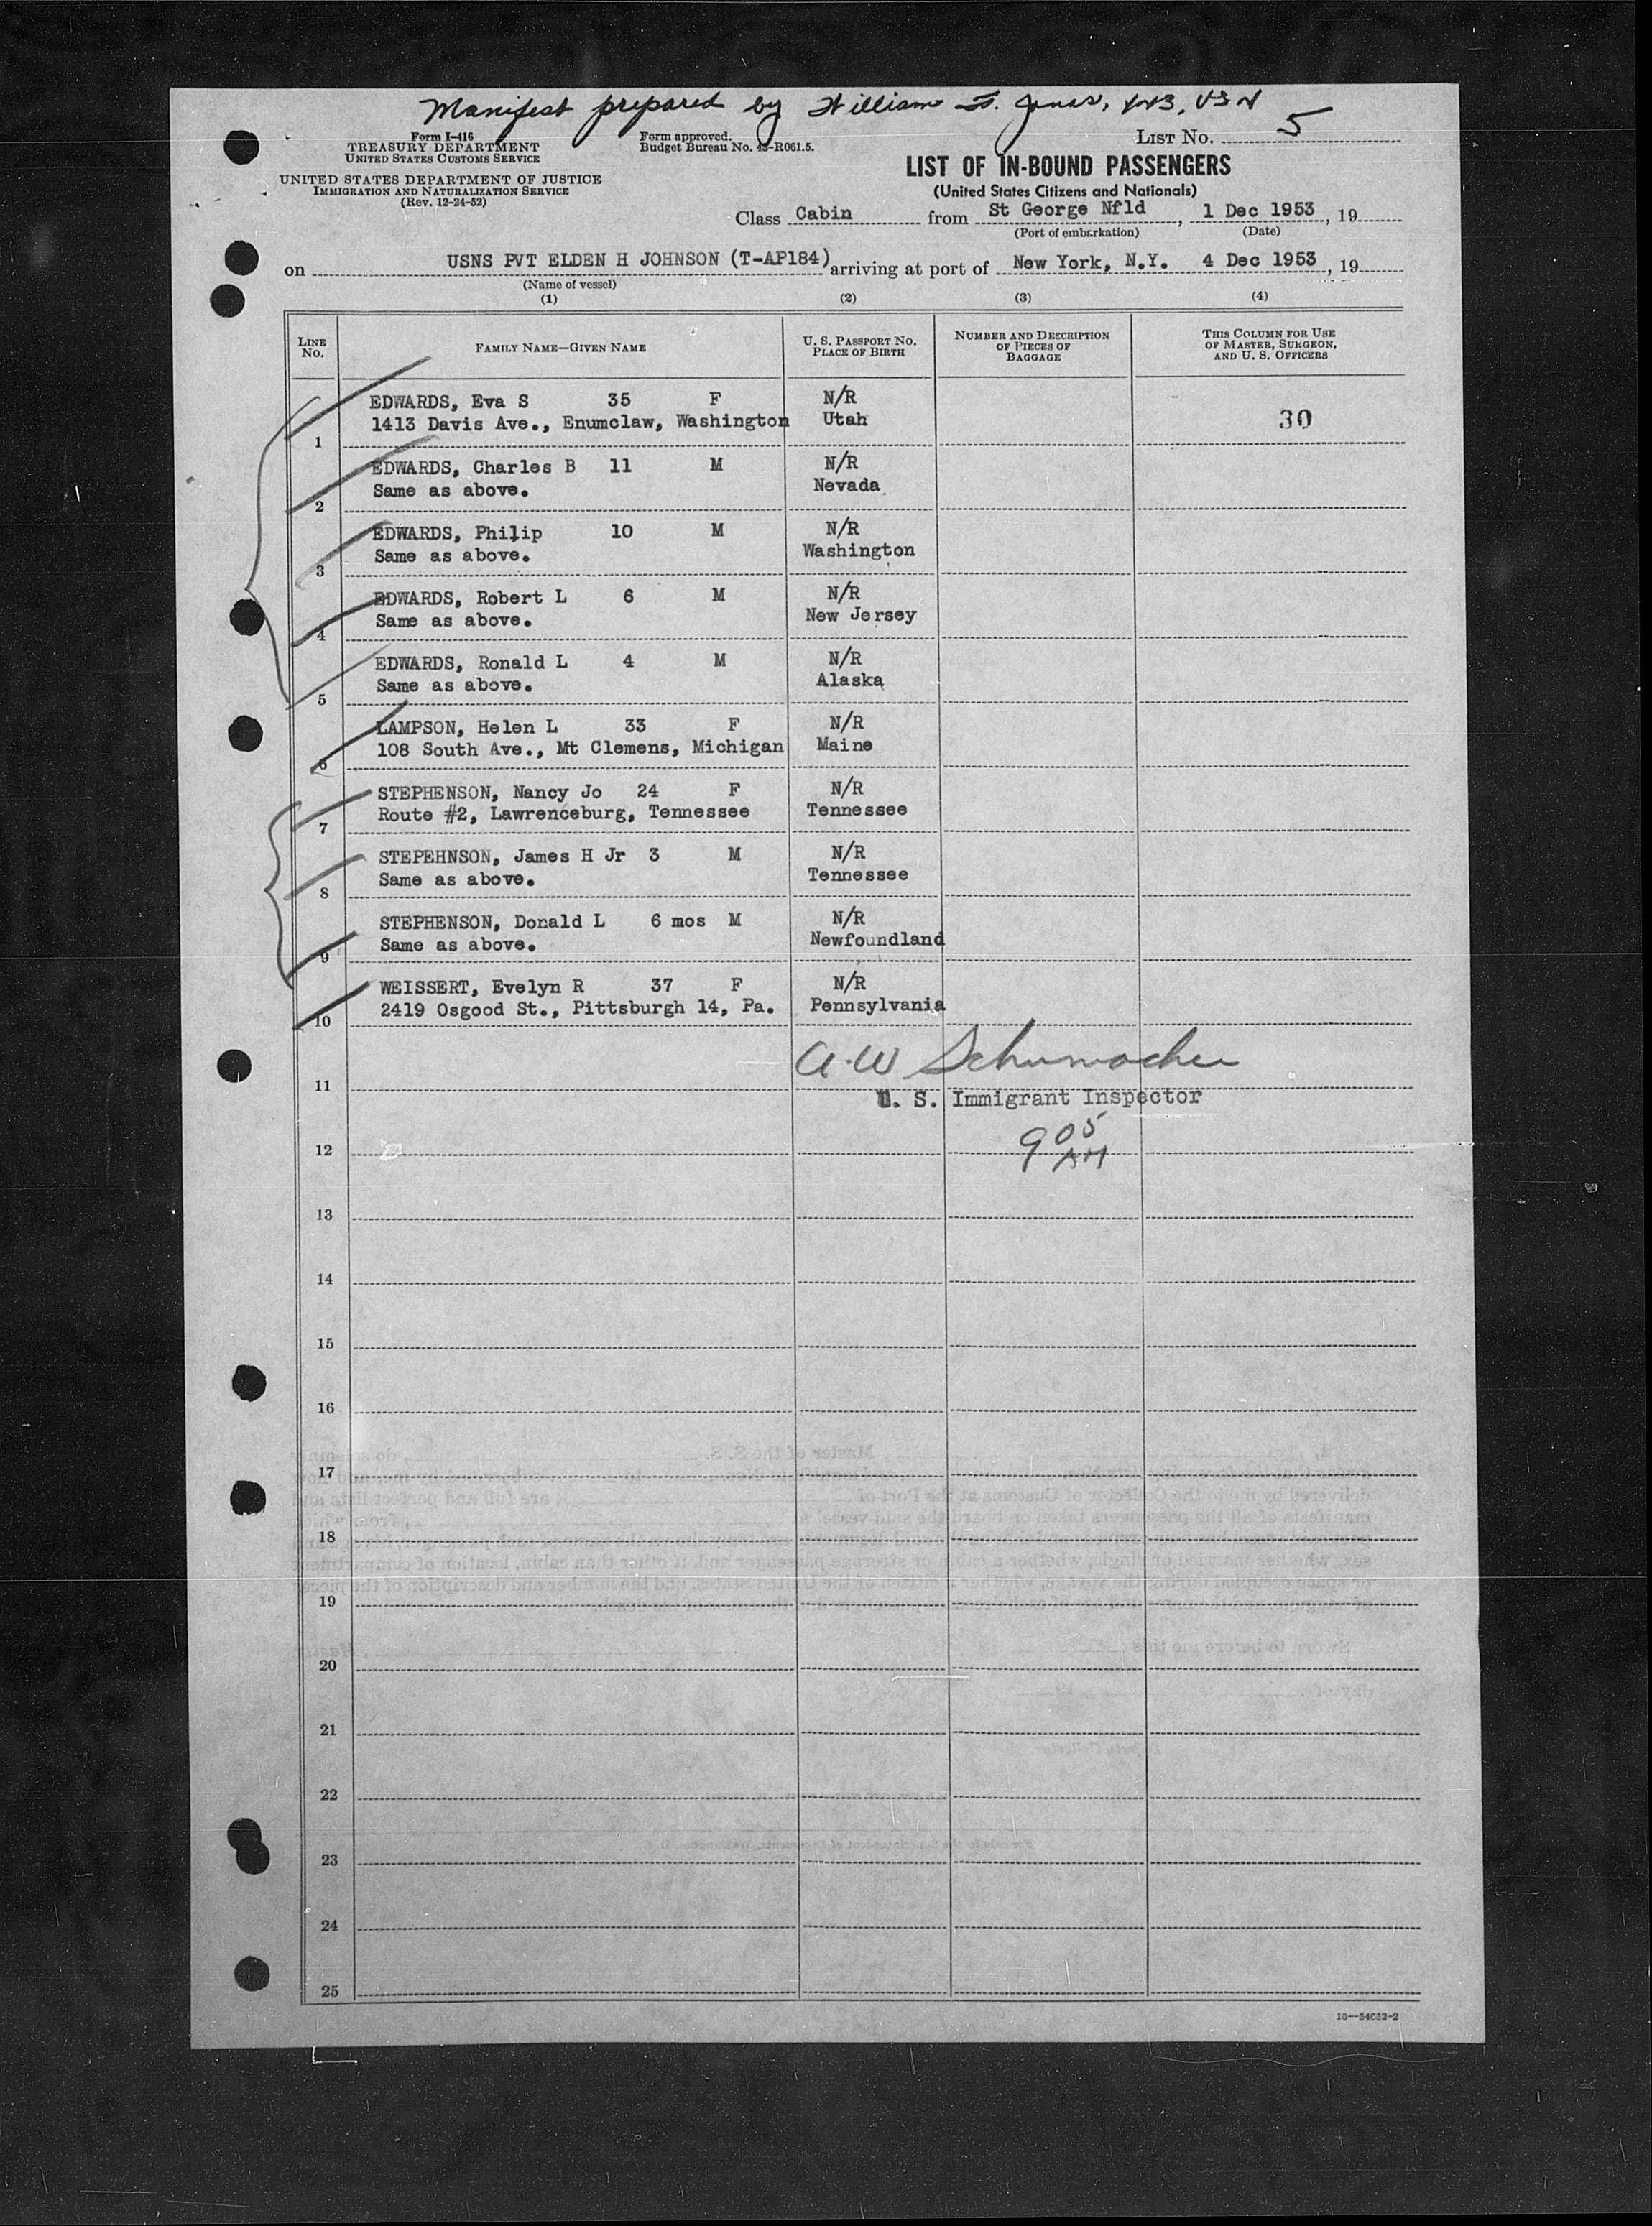 Manifest prepared by William F. Jones, YN3, USN
Form I-416
TREASURY DEPARTMENT
UNITED STATES CUSTOMS SERVICE
UNITED STATES DEPARTMENT OF JUSTICE
IMMIGRATION AND NATURALIZATION SERVICE
(Rev. 12-24-52)
Form approved.
Budget Bureau No. 43-R061.5.
LIST No. 5
LIST OF IN-BOUND PASSENGERS
(United States Citizens and Nationals)
Class Cabin from St George Nfld, 1 Dec 1953, 19
(Port of embarkation) (Date)
on USNS PVT ELDEN H JOHNSON (T-AP184) arriving at port of New York, N.Y. 4 Dec 1953, 19
(Name of vessel)
(1) (2) (3) (4)
LINE No. FAMILY NAME—GIVEN NAME U. S. PASSPORT No. PLACE OF BIRTH NUMBER AND DESCRIPTION OF PIECES OF BAGGAGE THIS COLUMN FOR USE OF MASTER, SURGEON, AND U. S. OFFICERS
EDWARDS, Eva S 35 F N/R
1 1413 Davis Ave., Enumclaw, Washington Utah 30
EDWARDS, Charles B 11 M N/R
2 Same as above. Nevada
EDWARDS, Philip 10 M N/R
3 Same as above. Washington
EDWARDS, Robert L 6 M N/R
4 Same as above. New Jersey
EDWARDS, Ronald L 4 M N/R
5 Same as above. Alaska
LAMPSON, Helen L 33 F N/R
6 108 South Ave., Mt Clemens, Michigan Maine
STEPHENSON, Nancy Jo 24 F N/R
7 Route #2, Lawrenceburg, Tennessee Tennessee
STEPEHNSON, James H Jr 3 M N/R
8 Same as above. Tennessee
STEPHENSON, Donald L 6 mos M N/R
9 Same as above. Newfoundland
WEISSERT, Evelyn R 37 F N/R
10 2419 Osgood St., Pittsburgh 14, Pa. Pennsylvania
A.W Schumacher
11
U. S. Immigrant Inspector
12 9 05 AM
13
14
15
16
17
18
19
20
21
22
23
24
25
16—54652-2